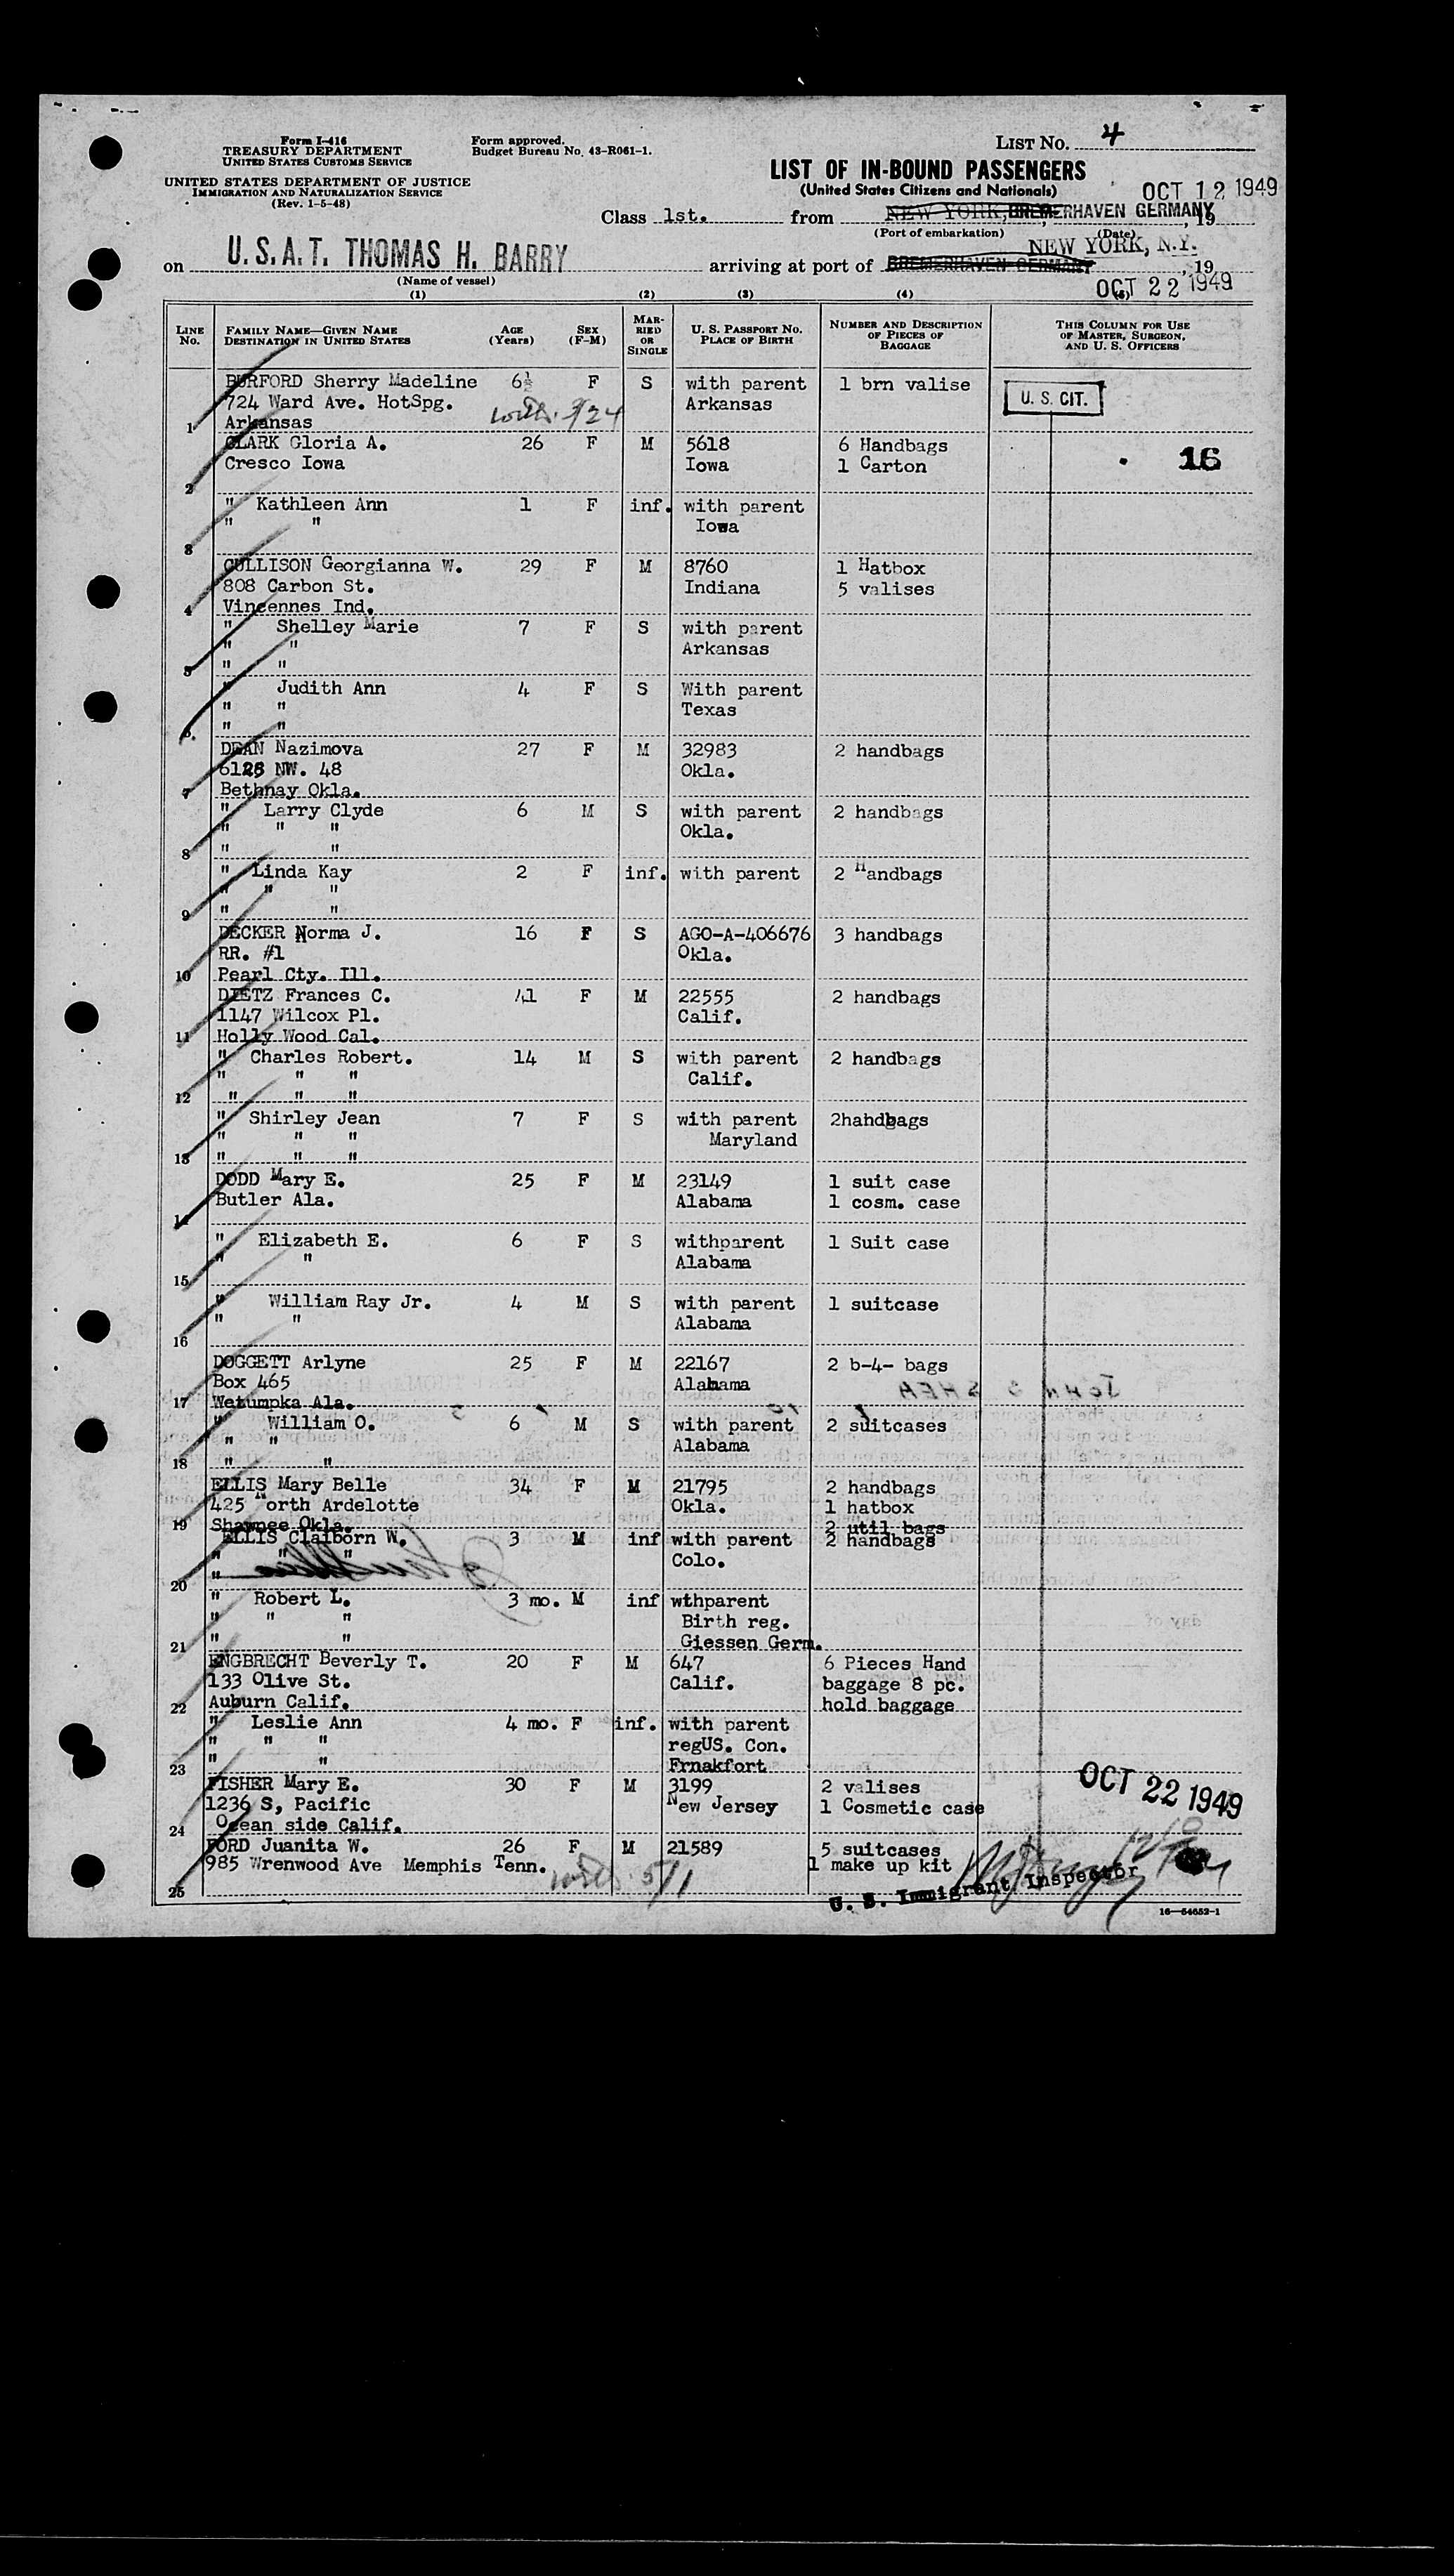 Form I-416
TREASURY DEPARTMENT
UNITED STATES CUSTOMS SERVICE
UNITED STATES DEPARTMENT OF JUSTICE
IMMIGRATION AND NATURALIZATION SERVICE
(Rev. 1-5-48)
Form approved.
Budget Bureau No. 43-R061-1.
LIST NO. 4
LIST OF IN-BOUND PASSENGERS
(United States Citizens and Nationals)
OCT 12 1949
Class 1st. from NEW YORK, BREMERHAVEN GERMANY, 19
(Port of embarkation) (Date)
on U.S.A.T. THOMAS H. BARRY arriving at port of BREMERHAVEN GERMANY NEW YORK, N.Y., 19
(Name of vessel)
OCT 22 1949
(1) (2) (3) (4) (5)
LINE NO. FAMILY NAME—GIVEN NAME DESTINATION IN UNITED STATES AGE (Years) SEX (F-M) MARRIED OR SINGLE U. S. PASSPORT NO. PLACE OF BIRTH NUMBER AND DESCRIPTION OF PIECES OF BAGGAGE THIS COLUMN FOR USE OF MASTER, SURGEON, AND U. S. OFFICERS
BURFORD Sherry Madeline 6½ F S with parent 1 brn valise U. S. CIT.
724 Ward Ave. HotSpg. Arkansas
1 Arkansas with 3/24
CLARK Gloria A. 26 F M 5618 6 Handbags 16
Cresco Iowa Iowa 1 Carton
2
" Kathleen Ann 1 F inf. with parent
" " Iowa
3
CULLISON Georgianna W. 29 F M 8760 1 Hatbox
808 Carbon St. Indiana 5 valises
4 Vincennes Ind.
" Shelley Marie 7 F S with parent
" " Arkansas
5 " "
" Judith Ann 4 F S With parent
" " Texas
6. " "
DEAN Nazimova 27 F M 32983 2 handbags
6128 NW. 48 Okla.
7 Bethnay Okla.
" Larry Clyde 6 M S with parent 2 handbags
" " " Okla.
8 " "
" Linda Kay 2 F inf. with parent 2 Handbags
" " "
9 " "
DECKER Norma J. 16 F S AGO-A-406676 3 handbags
RR. #1 Okla.
10 Pearl Cty. Ill.
DIETZ Frances C. 41 F M 22555 2 handbags
1147 Wilcox Pl. Calif.
11 Holly Wood Cal.
" Charles Robert. 14 M S with parent 2 handbags
" " " Calif.
12 " " "
" Shirley Jean 7 F S with parent 2hahdbags
" " " Maryland
13 " " "
DODD Mary E. 25 F M 23149 1 suit case
Butler Ala. Alabama 1 cosm. case
14
" Elizabeth E. 6 F S withparent 1 Suit case
" " Alabama
15
" William Ray Jr. 4 M S with parent 1 suitcase
" " Alabama
16
DOGGETT Arlyne 25 F M 22167 2 b-4- bags
Box 465 Alabama
17 Wetumpka Ala.
" William O. 6 M S with parent 2 suitcases
" " Alabama
18 " "
ELLIS Mary Belle 34 F M 21795 2 handbags
425 North Ardelotte Okla. 1 hatbox
19 Shawnee Okla. 2 util bags
ELLIS Claiborn W. 3 M inf with parent 2 handbags
" " " Colo.
20 "
" Robert L. 3 mo. M inf wthparent
" " " Birth reg.
21 " " Giessen Germ.
ENGBRECHT Beverly T. 20 F M 647 6 Pieces Hand
133 Olive St. Calif. baggage 8 pc.
22 Auburn Calif. hold baggage
" Leslie Ann 4 mo. F inf. with parent
" " " regUS. Con.
23 " " Frnakfort
FISHER Mary E. 30 F M 3199 2 valises OCT 22 1949
1236 S, Pacific New Jersey 1 Cosmetic case
24 Ocean side Calif.
FORD Juanita W. 26 F M 21589 5 suitcases
985 Wrenwood Ave Memphis Tenn. 1 make up kit
25 with 5/1 U. S. Immigrant Inspector
16—54652-1